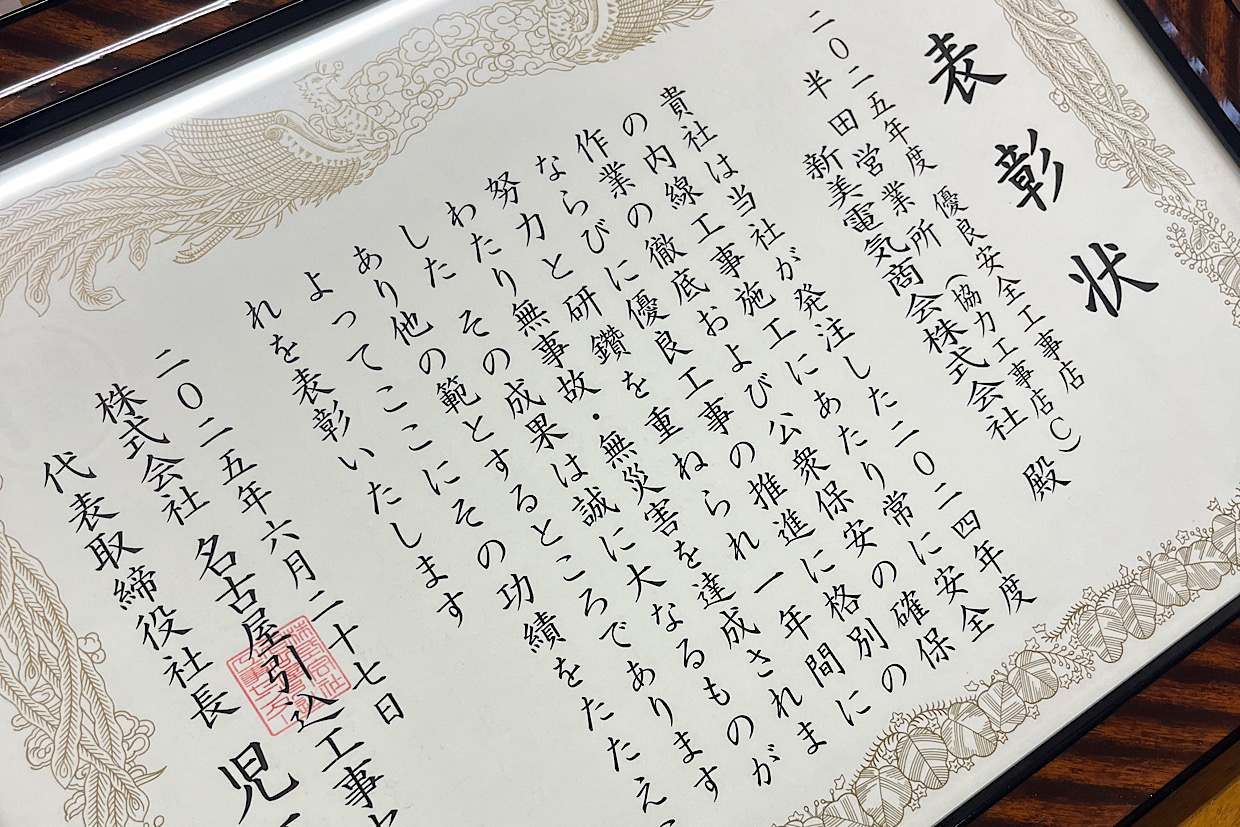 表彰状
二〇二五年度 優良安全工事店
半田営業所(協力工事店C)
新美電気商会株式会社 殿
貴社は当社が発注した二〇二四年度
の内線工事施工にあたり常に安全
作業の徹底および公衆保安の確保
ならびに優良工事の推進に格別の
努力と研鑽を重ねられ一年間に
わたり無事故・無災害を達成されま
した その成果は誠に大なるものが
あり他の範とするところであります
よってここにその功績をたたえ
れを表彰いたします
二〇二五年六月二十七日
株式会社 名古屋引込工事
代表取締役社長 児